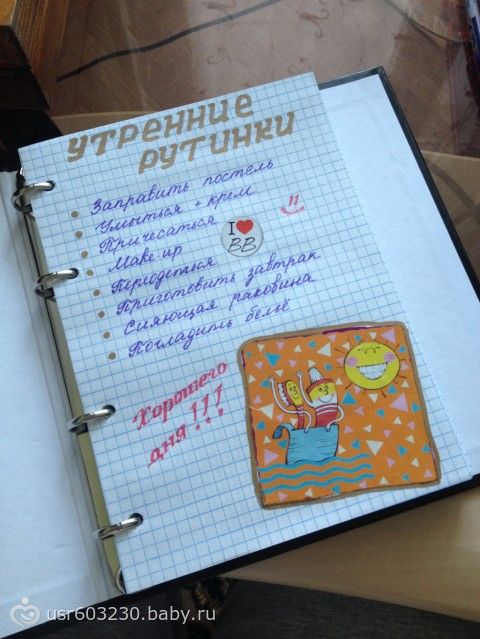 УТРЕННИЕ
РУТИНКИ
Заправить постель
Умыться + крем
Причесаться
Make-up
Переодеться
Приготовить завтрак
Сияющая раковина
Погладить бельё
I ❤
BB
Хорошего
дня!!!
usr603230.baby.ru